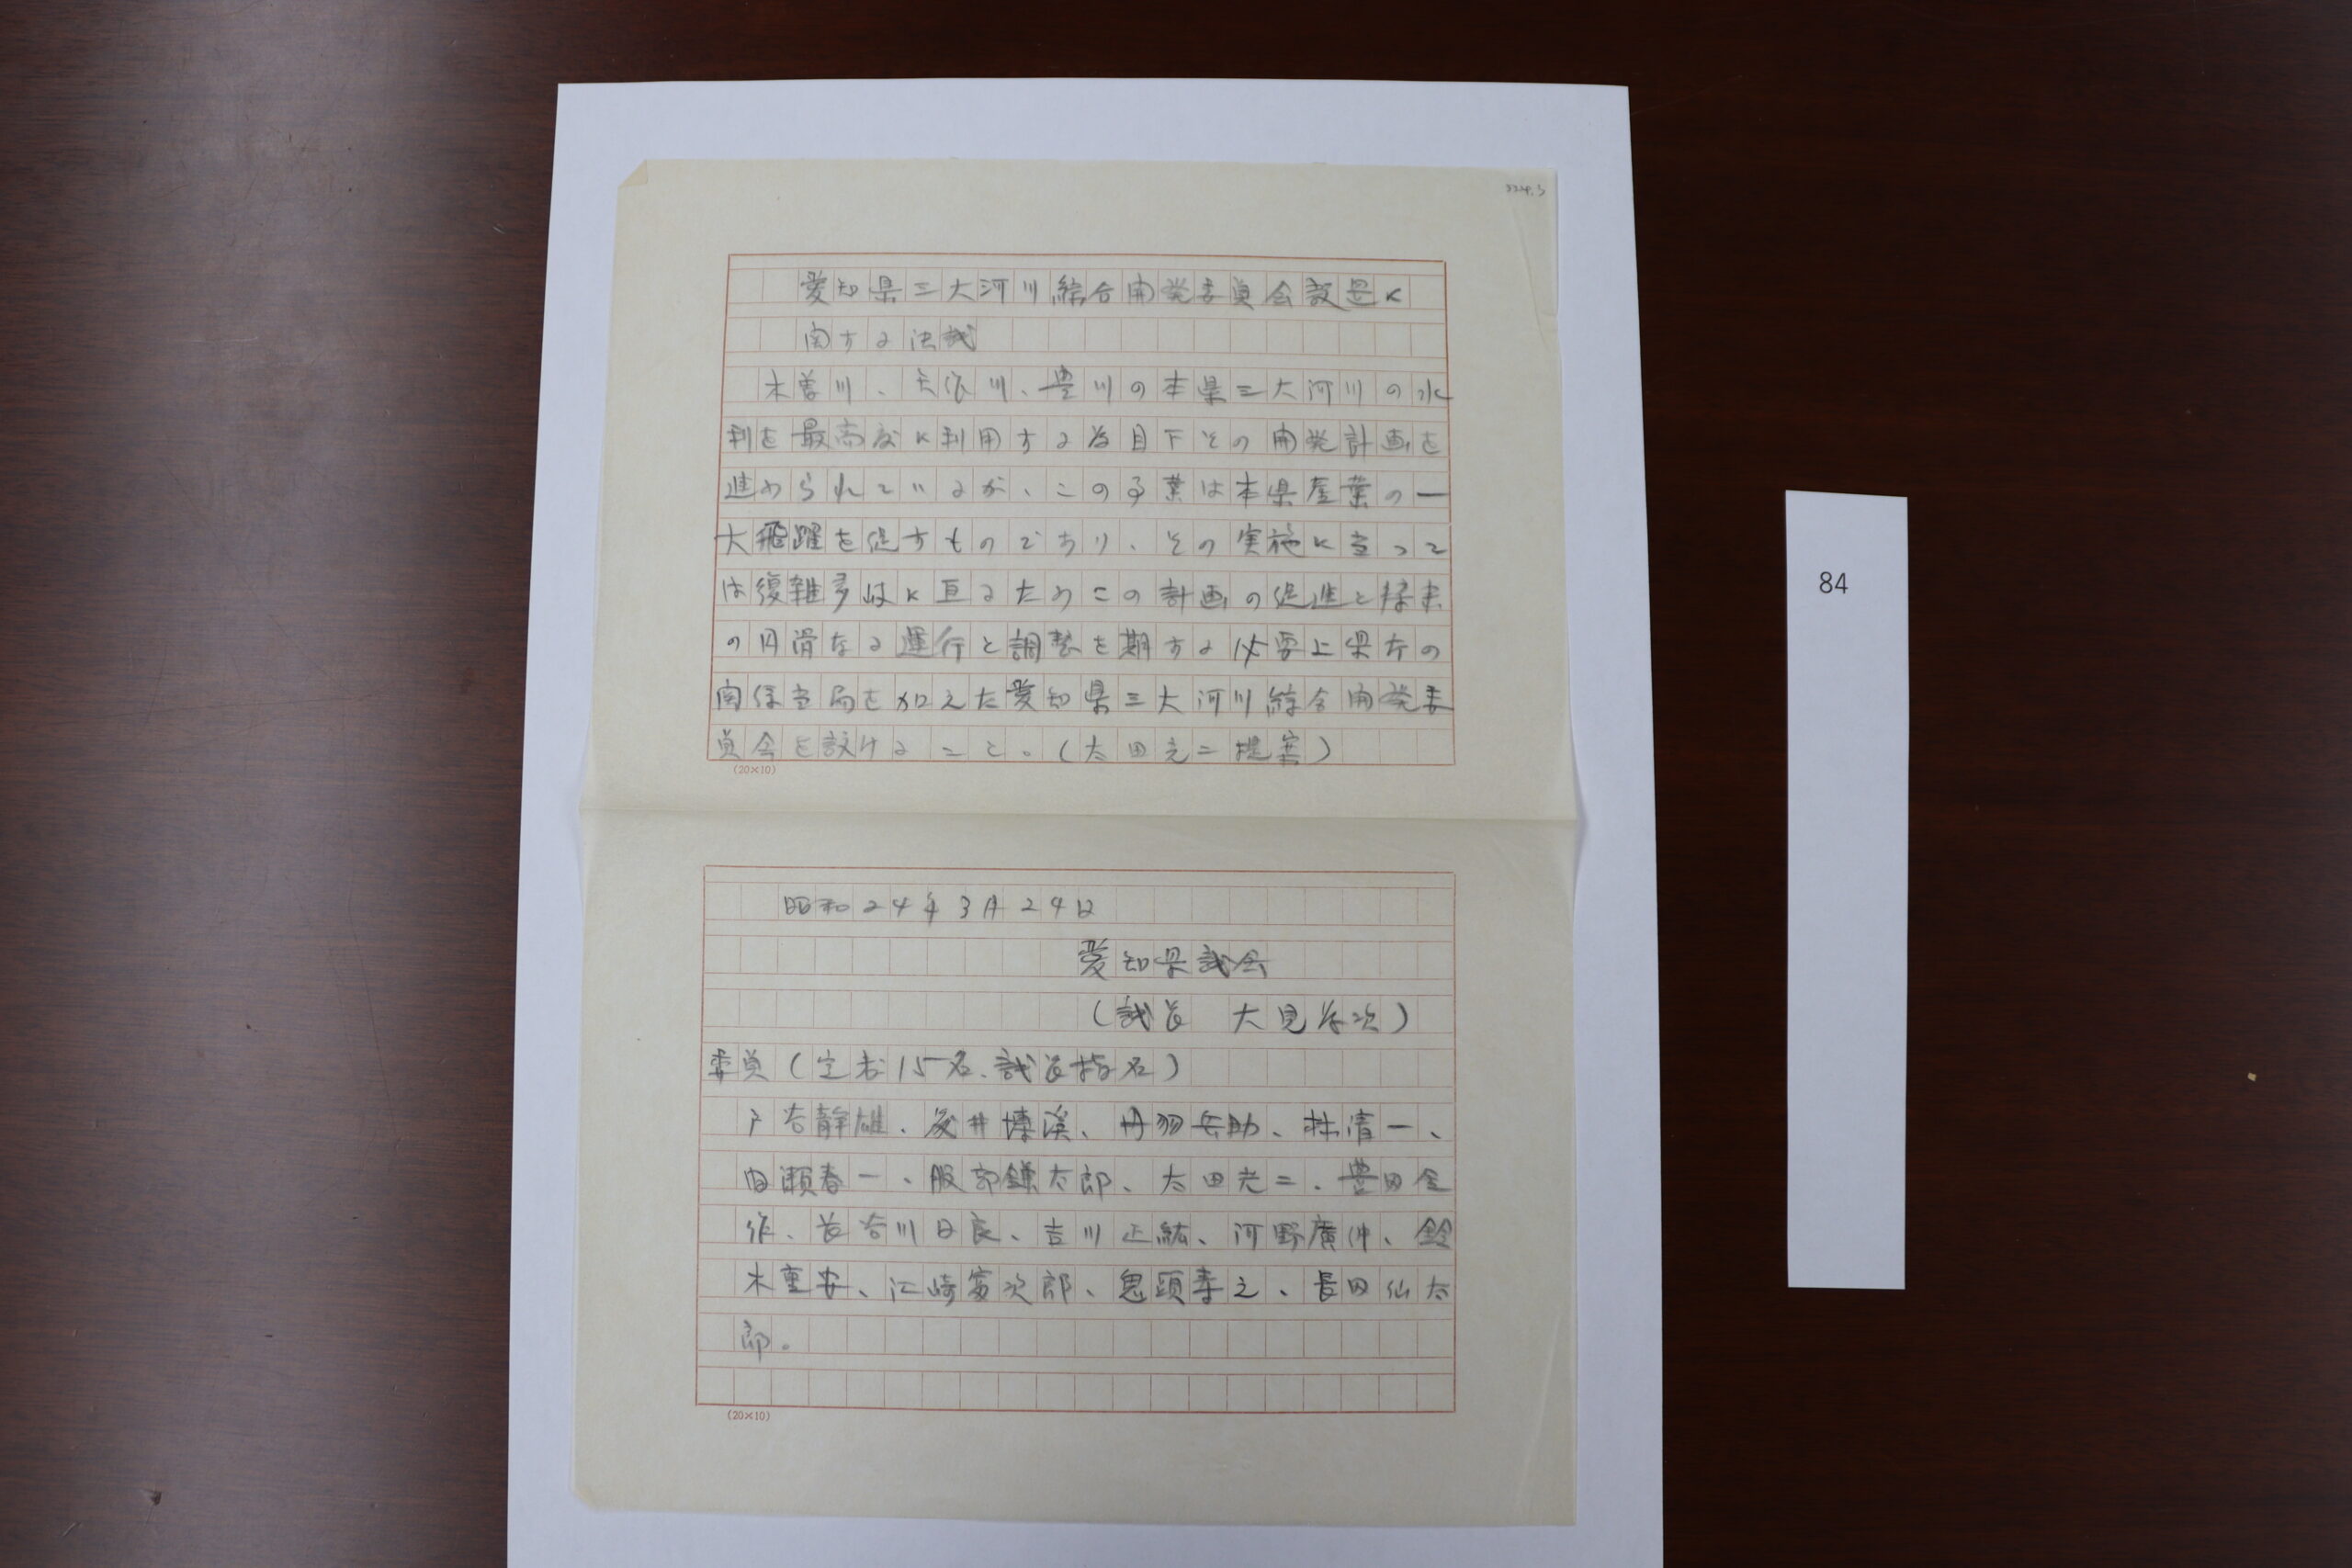 愛知県三大河川綜合開発委員会設置に
関する決議
木曽川、矢作川、豊川の本県三大河川の水
利を最高度に利用する為目下その開発計画を
進められているが、この事業は本県産業の一
大飛躍を促すものであり、その実施に当つて
は復雑多岐に亘るためこの計画の促進と将来
の円滑なる運行と調整を期する必要上県庁の
関係当局を加えた愛知県三大河川綜合開発委
員会を設けること。(太田光二提案)
(20×10)
昭和24年3月24日
愛知県議会
(議長 大見為次)
委員(定数15名、議長指名)
戸谷静雄、酒井博溪、丹羽兵助、林清一、
白瀬春一、服部鎌太郎、太田光二、豊田金
作、長谷川日良、吉川正紘、河野廣仲、鈴
木重安、江崎富次郎、鬼頭孝之、長田仙太
郎。
(20×10)
84